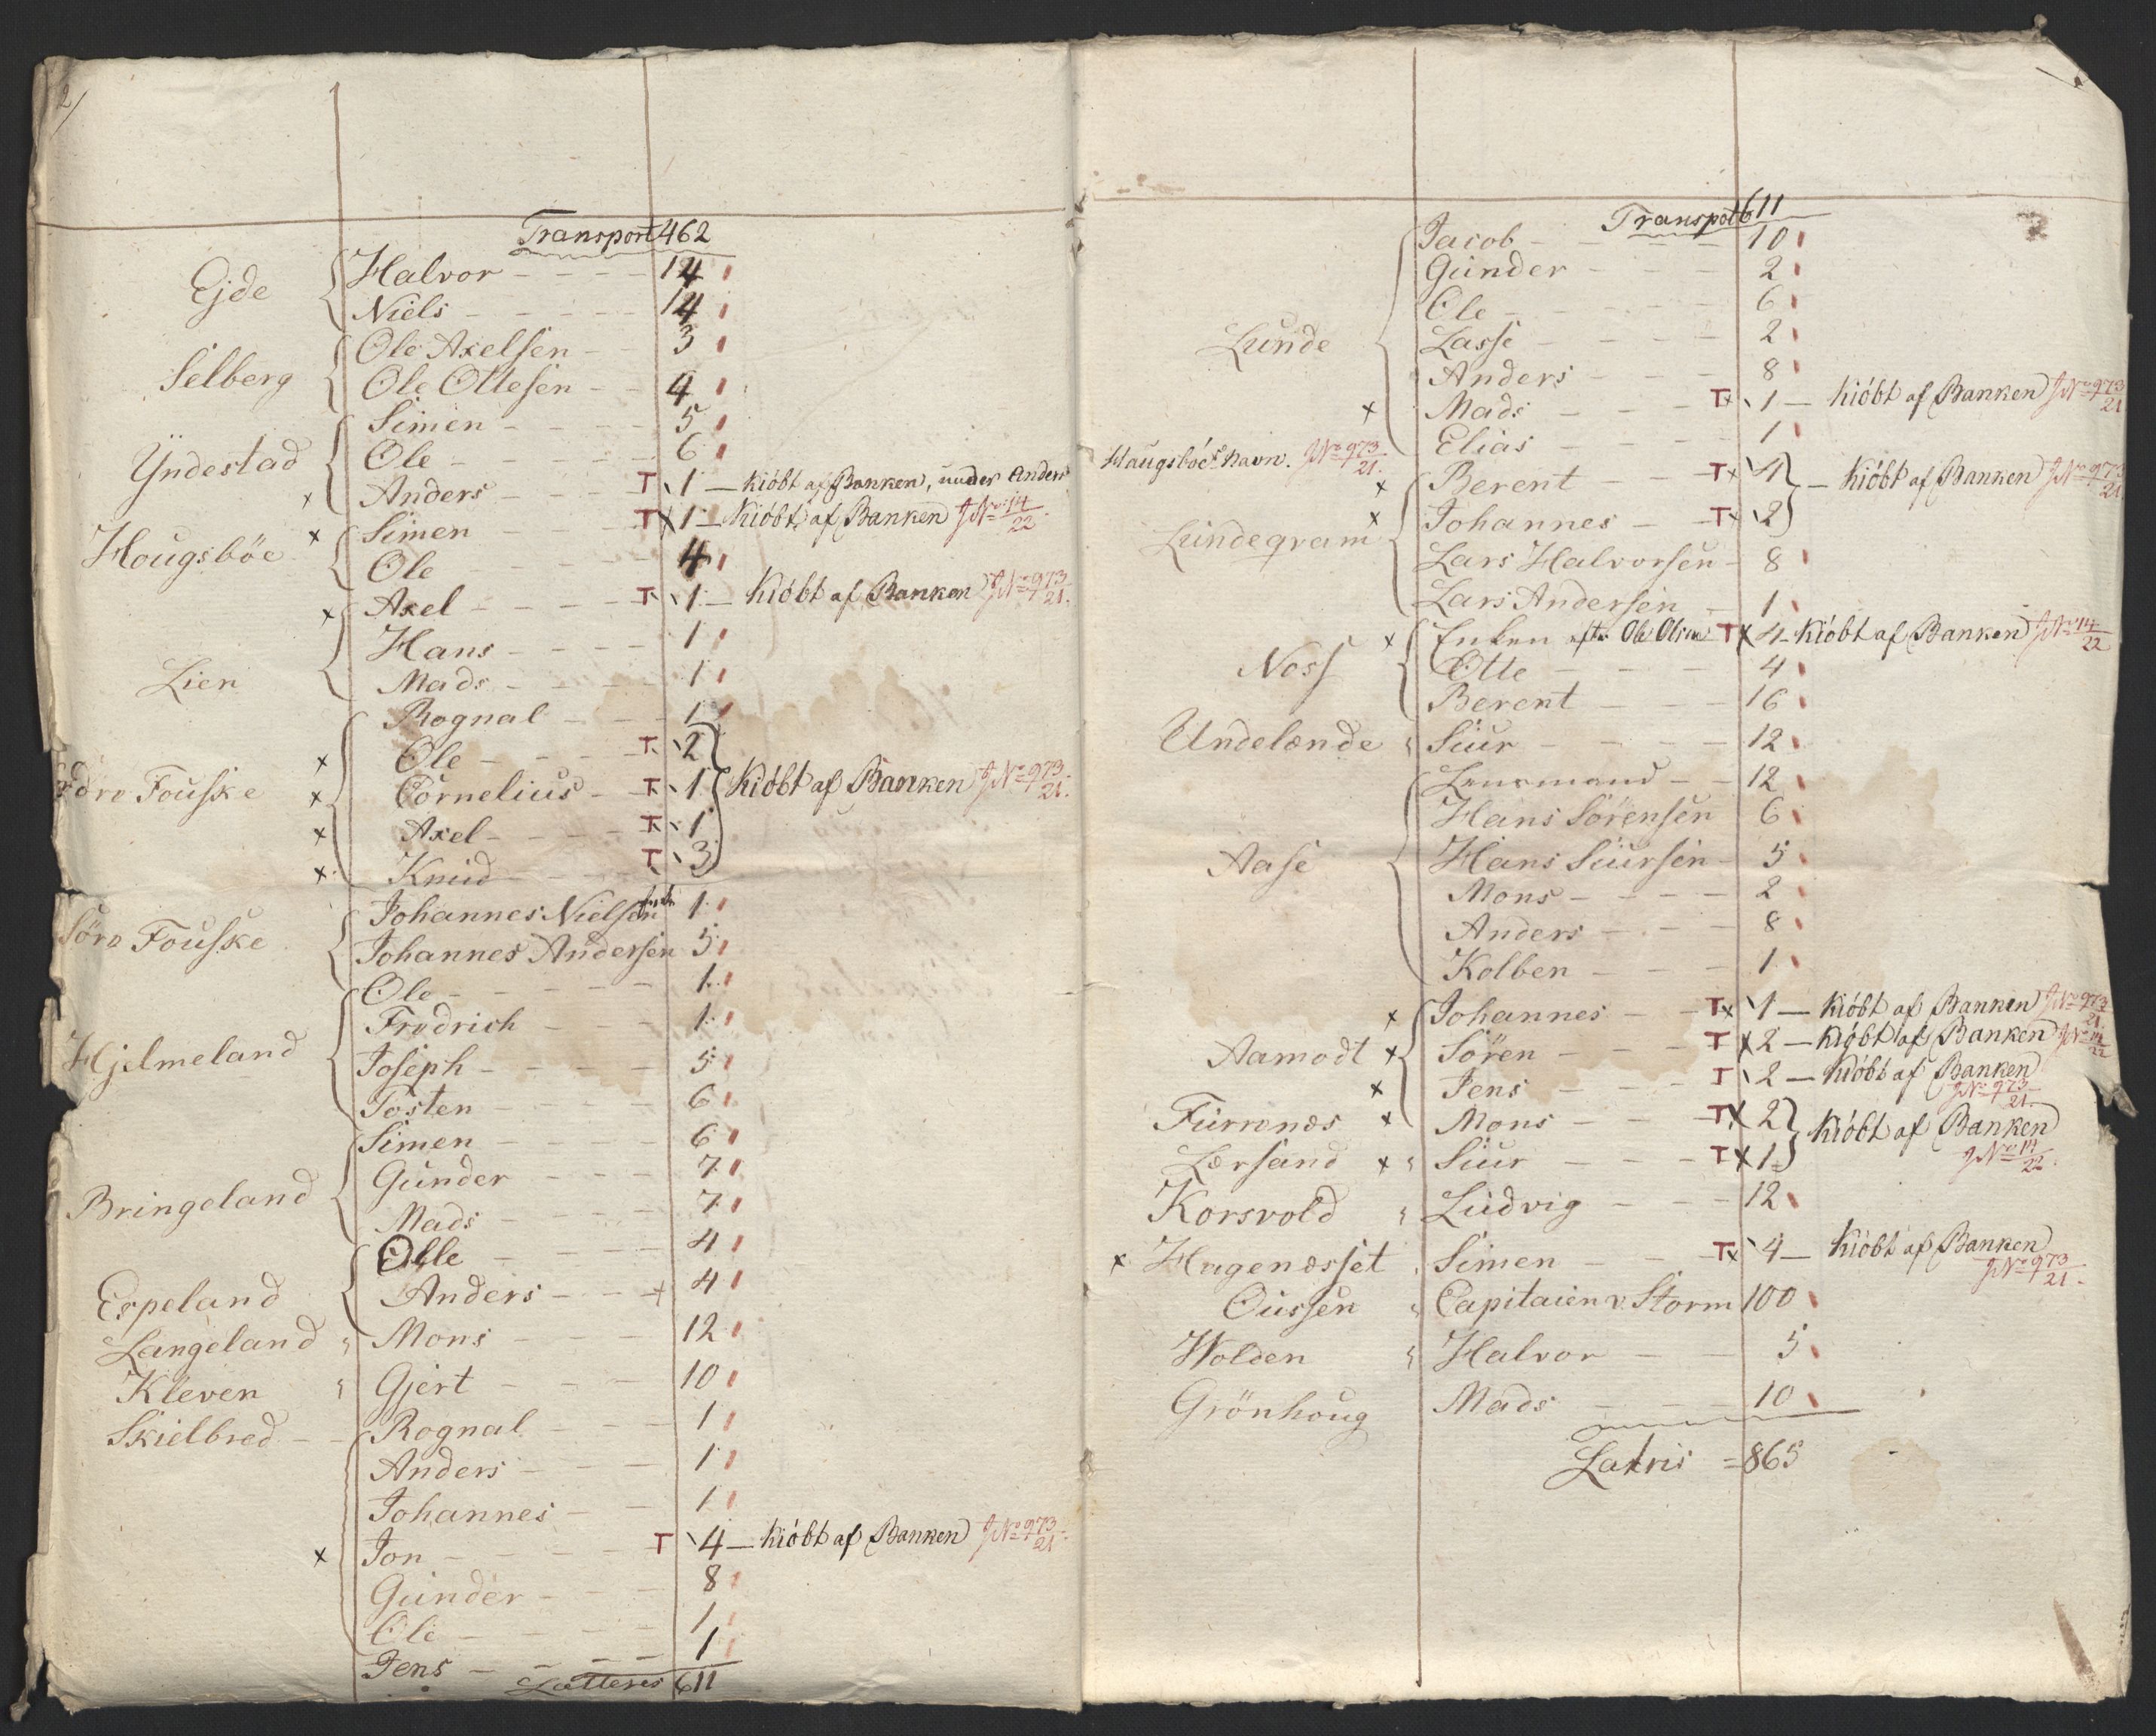 2/
Transport 462
Ejde Halvor 14
Niels 14
Selberg Ole Axelsen 3
Ole Ottesen 4
Yndestad Simen 5
Ole 6
x Anders T 1 — Kiöbt af Banken, under Anders
Hougsböe x Simen T x 1 — Kiöbt af Banken JNo 14/22.
Ole 4
x Axel T 1 — Kiöbt af Banken JNo 973/21.
Lien Hans 1
Mads 1
Rognal 1
x Ole T 2
Fouske x Cornelius T 1 Kiöbt af Banken JNo 973/21.
x Axel T 1
x Knud T 3
Söre Fouske Johannes Nielsen 1
Johannes Andersen 5
Ole 1
Hjelmeland Fredrich 1
Joseph 5
Tosten 6
Simen 6
Bringeland Gunder 7
Mads 7
Olle 4
Espeland Anders x 4
Langeland Mons 12
Kleven Gjert 10
Skielbred Rognal 1
Anders 1
Johannes 1
x Jon T 4 — Kiöbt af Banken JNo 973/21.
Gunder 8
Ole 1
Jens 1
Latteris 611
Transpot 611
Jacob 10
Gunder 2
Ole 6
Lunde Lasse 2
Anders 8
x Mads Tx 1 — Kiöbt af Banken JNo 973/21
Elias 1
Haugsböe Navn. JNo 973/21.
x Berent Tx 4 — Kiöbt af Banken JNo 973/21
Lundeqvam x Johannes Tx 2
Lars Halvorsen 8
Lars Andersen 1
x Enken eftr Ole Olsen T x 4 — Kiöbt af Banken JNo 14/22
Noss Otte 4
Berent 16
Undelænde Siur 12
Lensmand 12
Hans Sörensen 6
Aase Hans Siursen 5
Mons 2
Anders 8
Kolben 1
x Johannes Tx 1 — Kiöbt af Banken JNo 973/21
Aamodt x Sören T x 2 — Kiöbt af Banken JNo 14/22
x Jens T 2 — Kiöbt af Banken JNo 973/21.
Furrenæs x Mons T x 2 Kiöbt af Banken
Lersand x Siur T x 1 JNo 14/22.
Korsvold Ludvig 12
x Hagenæsset Simen Tx 4 — Kiöbt af Banken JNo 973/21.
Oussen Capitaien v. Storm 100
Wolden Halvor 5
Grönhoug Mads 10
Latris = 865